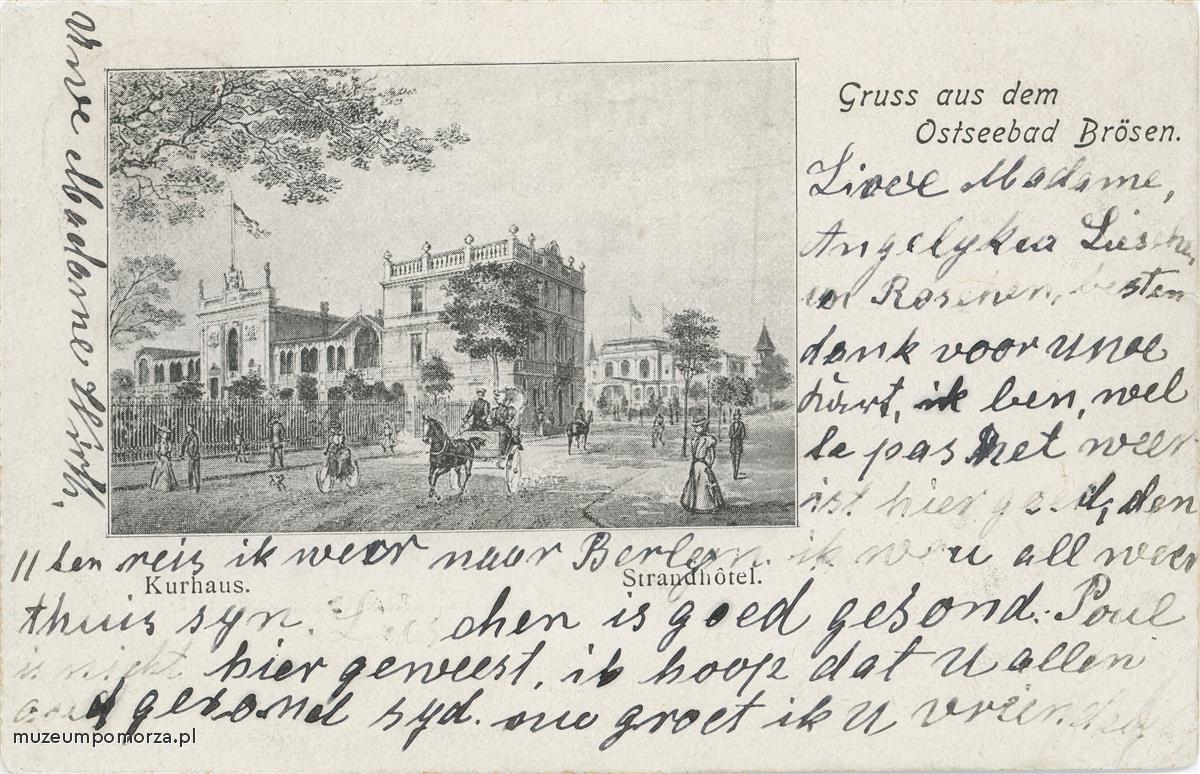 Gruss aus dem
Ostseebad Brösen.
Lieve Madame,
Angelyka Lieschen
en Rosenen, besten
dank voor Uwe
Kart, ik ben, wel
te pas het weer
ist hier goed, den
11 ten reis ik weer naar Berlyn. ik wou all weer
Kurhaus.
Strandhôtel.
thuis syn. Lieschen is goed gesond. Poul
is nicht hier geweest, ik hoop dat U allen
goed gesond syd. nu groet ik U vriendelyk
Uwe Madame Hirth,
muzeumpomorza.pl